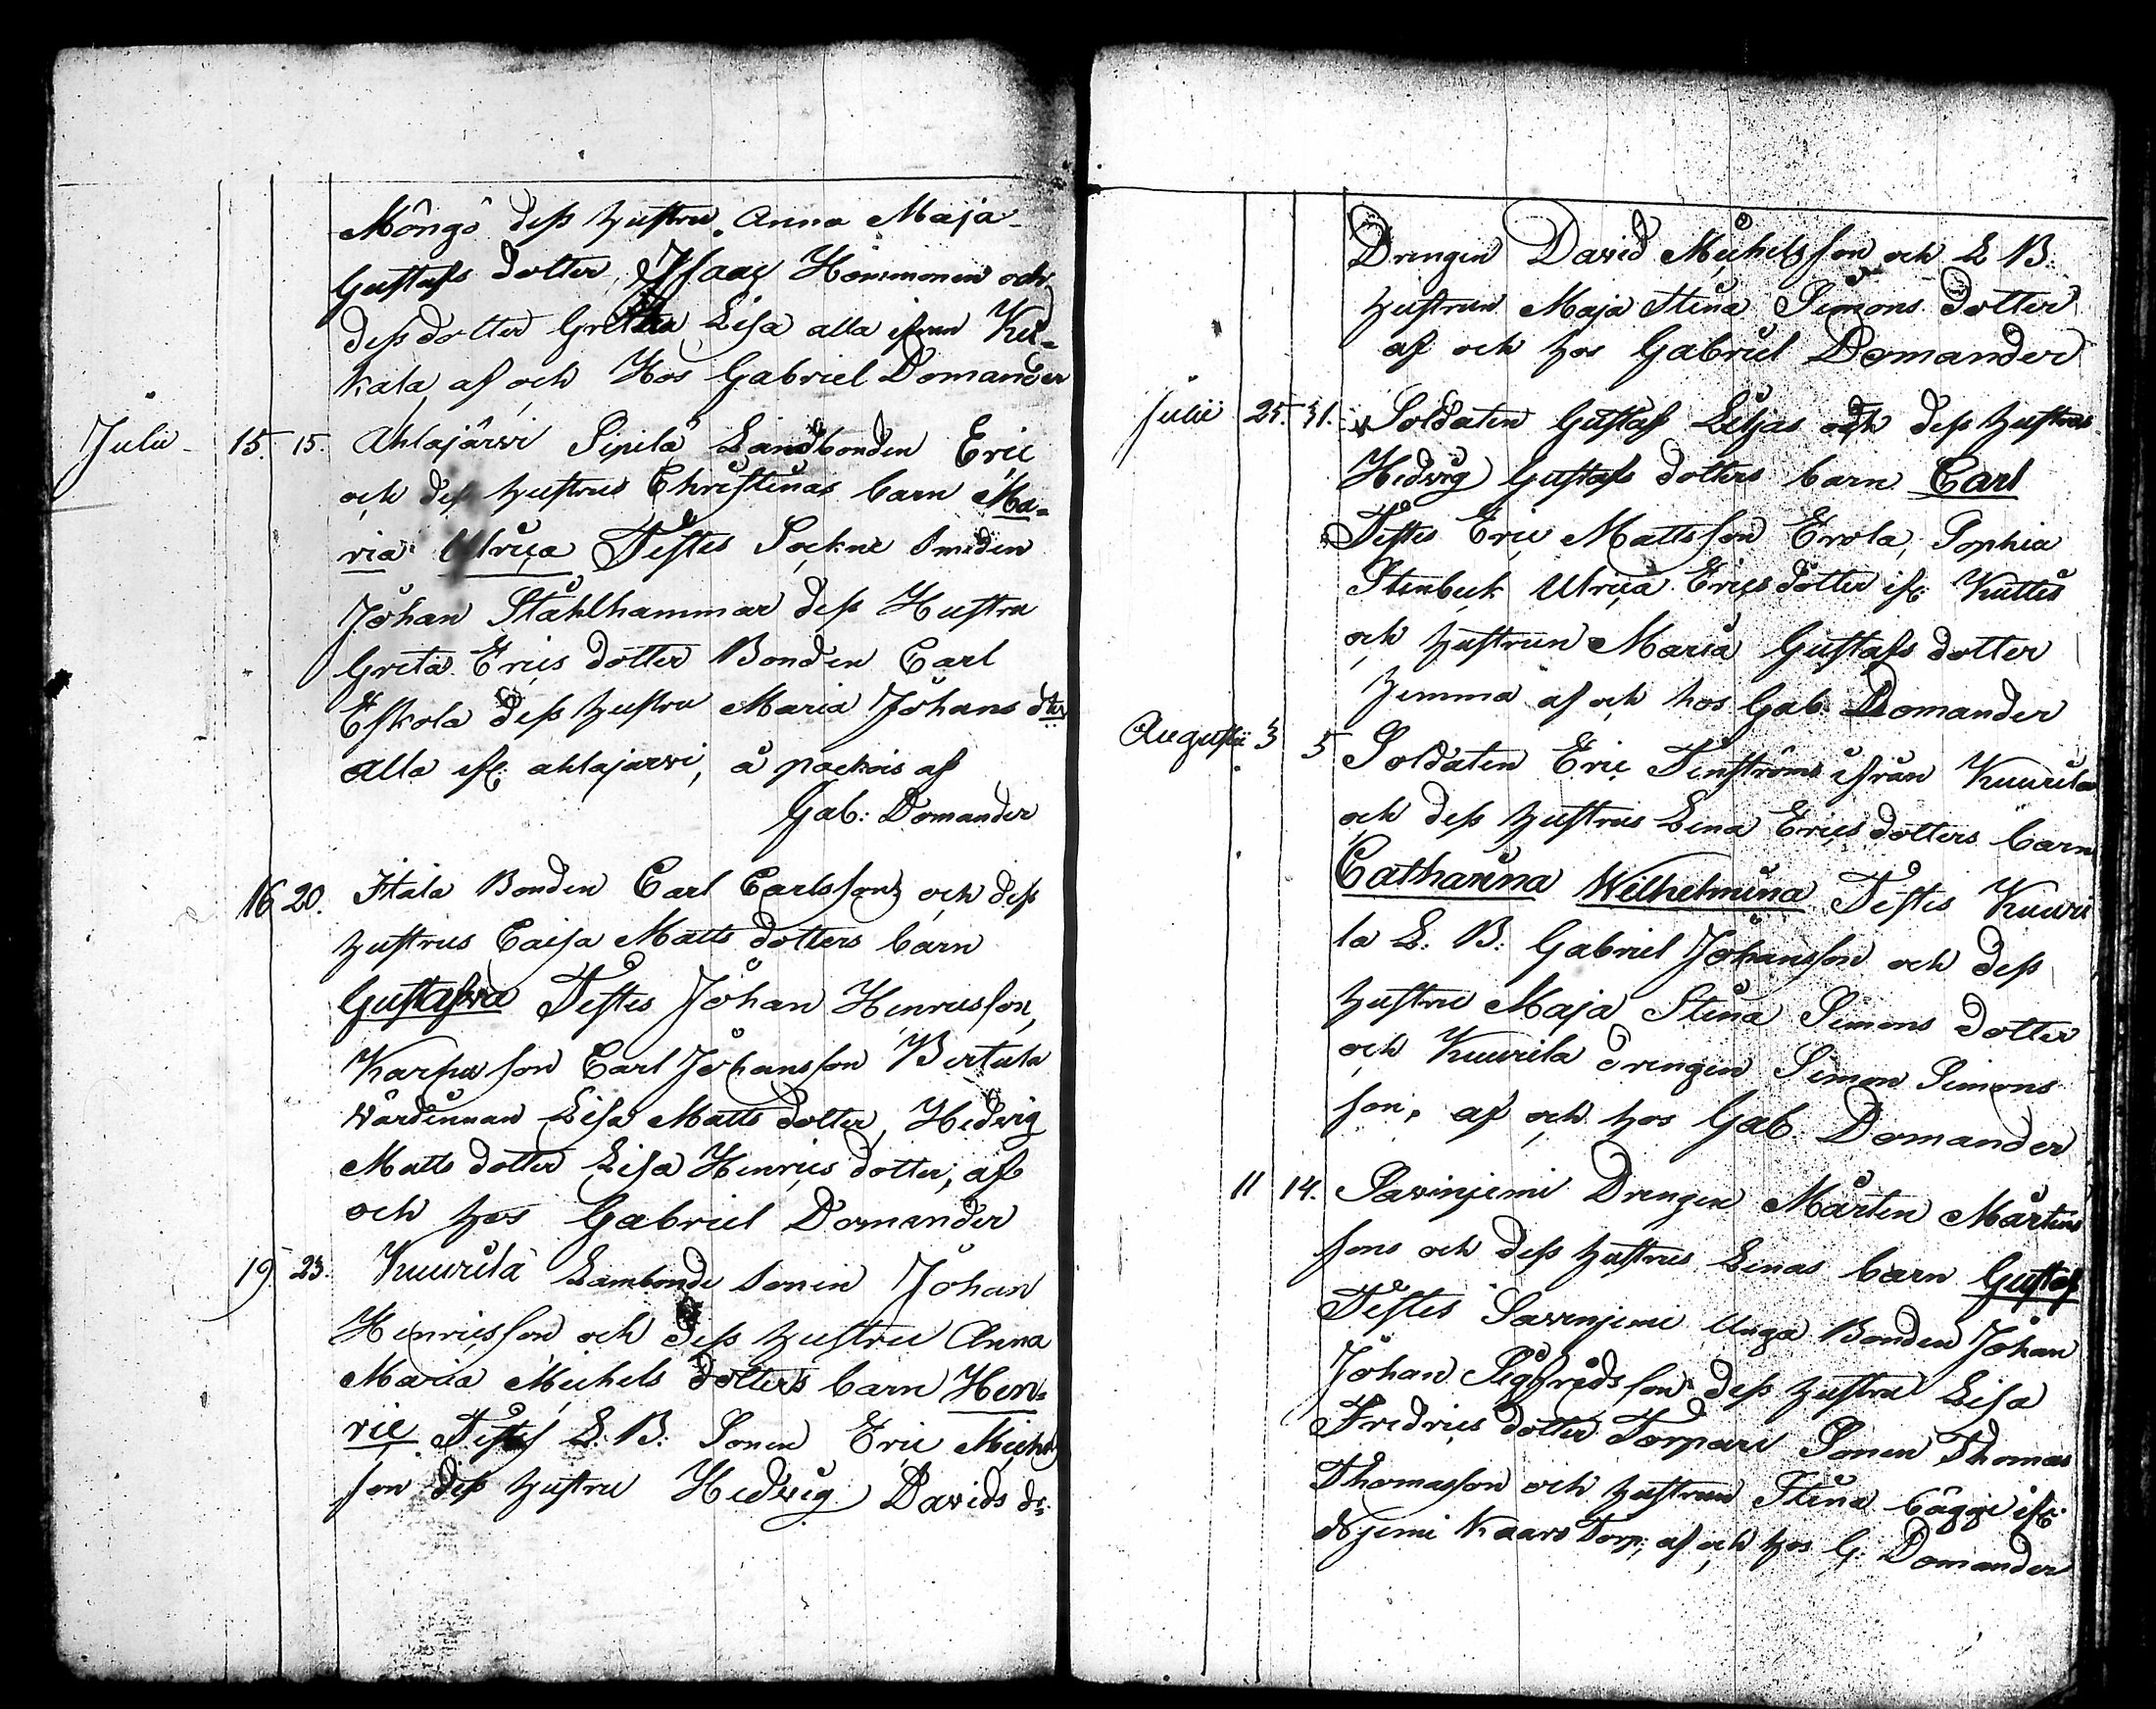 Môngö dess hustru Anna Maja
Gustafs dotter, Isaac Hommonen och
dess dotter Greta Lisa alla ifrån Ku-
kala af och Hos Gabriel Domander
Julii 15. 15. Ahlajärwi Sipilä Landbonden Eric
och dess hustrus Christinas barn Ma-
ria Ulrica Testes Sockne Smeden
Johan Stahlhammar dess Hustru
Greta Erics dotter Bonden Carl
Eskola dess hustru Maria Johans dter
alla ifr: ahlajarwi, å pockois af
Gab: Domander
16 20. Itala Bonden Carl Carlssons och dess
hustrus Caisa Matts dotters barn
Gustafwa Testes Johan Henricsson,
Karpu son Carl Johansson Bertula
Wärdinnan Lisa Matts dotter, Hedvig
Matts dotter Lisa Henrics dotter, af
och hos Gabriel Domander
19 23. Kuurila Lambonde sonen Johan
Henricsson och dess hustru Anna
Maria Michels dotters barn Hen-
ric. Testes L. B. Sonen Eric Michels
son dess hustru Hedvig Davids dr:
Drengen David Michelsson och L B:
hustrun Maja Stina Simons dotter
af och hos Gabriel Domander
Julii 25. 31. Soldaten Gustaf Liljas och dess hustrus
Hedvig Gustafs dotters barn Carl
Testes Eric Mattsson Erola, Sophia
Stenbeck Ulrica Erics dotter ifr: Kuttis
och hustrun Maria Gustafs dotter
hemma af och hos Gab. Domander
Augusti 3 5 Soldaten Eric Tenströms ifrån Kuurila
och dess hustrus Lena Erics dotters barn
Catharina Wilhelmina Testes Kuuri
la L. B: Gabriel Johansson och dess
hustru Maja Stina Simons dotter
och Kuurila drengen Simon Simons
son, af och hos Gab. Domander
11 14. Savinjemi Drengen Mårten Mårtens
sons och dess hustrus Lenas barn Gustaf
Testes Savinjemi Unga Bonden Johan
Johan Sigfridsson dess hustru Lisa
Fredrics dotter Torpare Sonen Thomas
Thomasson och hustrun Stina bägge ifr:
Njemi Kaars Torp; af och hos G: Domander